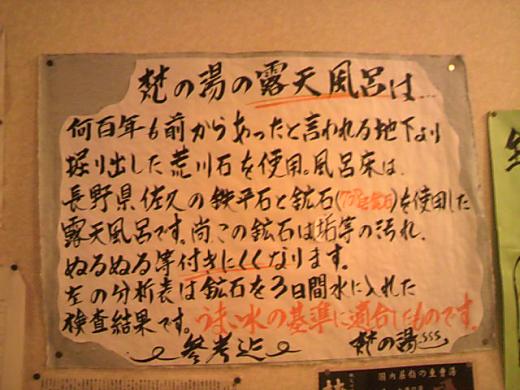 梵の湯の露天風呂は…
何百年も前からあったと言われる地下より
掘り出した荒川石を使用。風呂床は、
長野県佐久の鉄平石と鉱石()を使用した
露天風呂です。尚、この鉱石は垢等の汚れ、
ぬるぬる等付きにくくなります。
左の分析表は鉱石を3日間水に入れた
検査結果です。うまい水の基準に適合したものです。
参考迄 梵の湯